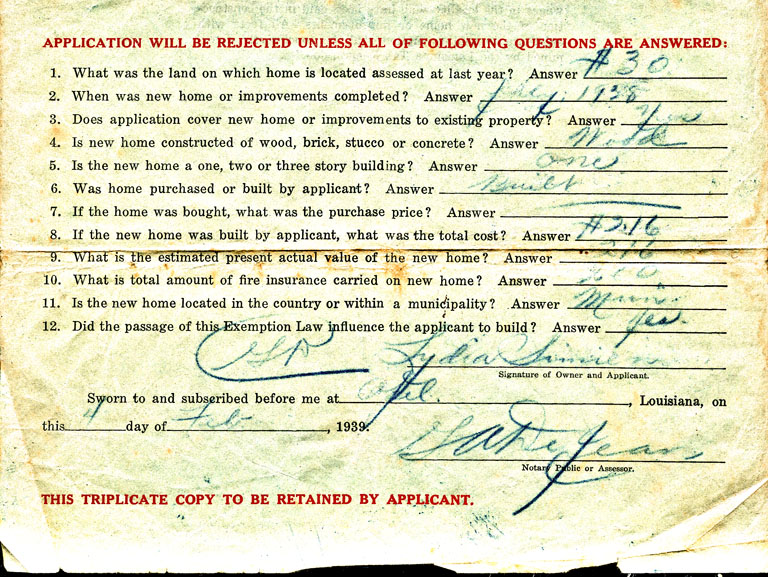 APPLICATION WILL BE REJECTED UNLESS ALL OF FOLLOWING QUESTIONS ARE ANSWERED:
1. What was the land on which home is located assessed at last year? Answer $30
2. When was new home or improvements completed? Answer 1938
3. Does application cover new home or improvements to existing property? Answer Yes
4. Is new home constructed of wood, brick, stucco or concrete? Answer Wood
5. Is the new home a one, two or three story building? Answer One
6. Was home purchased or built by applicant? Answer Built
7. If the home was bought, what was the purchase price? Answer
8. If the new home was built by applicant, what was the total cost? Answer $216
9. What is the estimated present actual value of the new home? Answer 216
10. What is total amount of fire insurance carried on new home? Answer
11. Is the new home located in the country or within a municipality? Answer Muni
12. Did the passage of this Exemption Law influence the applicant to build? Answer Yes.
Lydia Simien
Signature of Owner and Applicant.
Sworn to and subscribed before me at Opel. , Louisiana, on
this 4 day of Feb , 1939.
Notary Public or Assessor.
THIS TRIPLICATE COPY TO BE RETAINED BY APPLICANT.